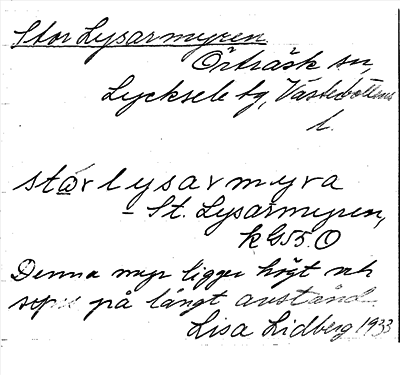 Stor Lysarmyren
Örträsk sn,
Lycksele tg, Västerbottens
l.
stårlysarmyra
– St. Lysarmyren,
k G55.O
Denna myr ligger högt och
på långt avstånd
Lisa Lidberg 1933